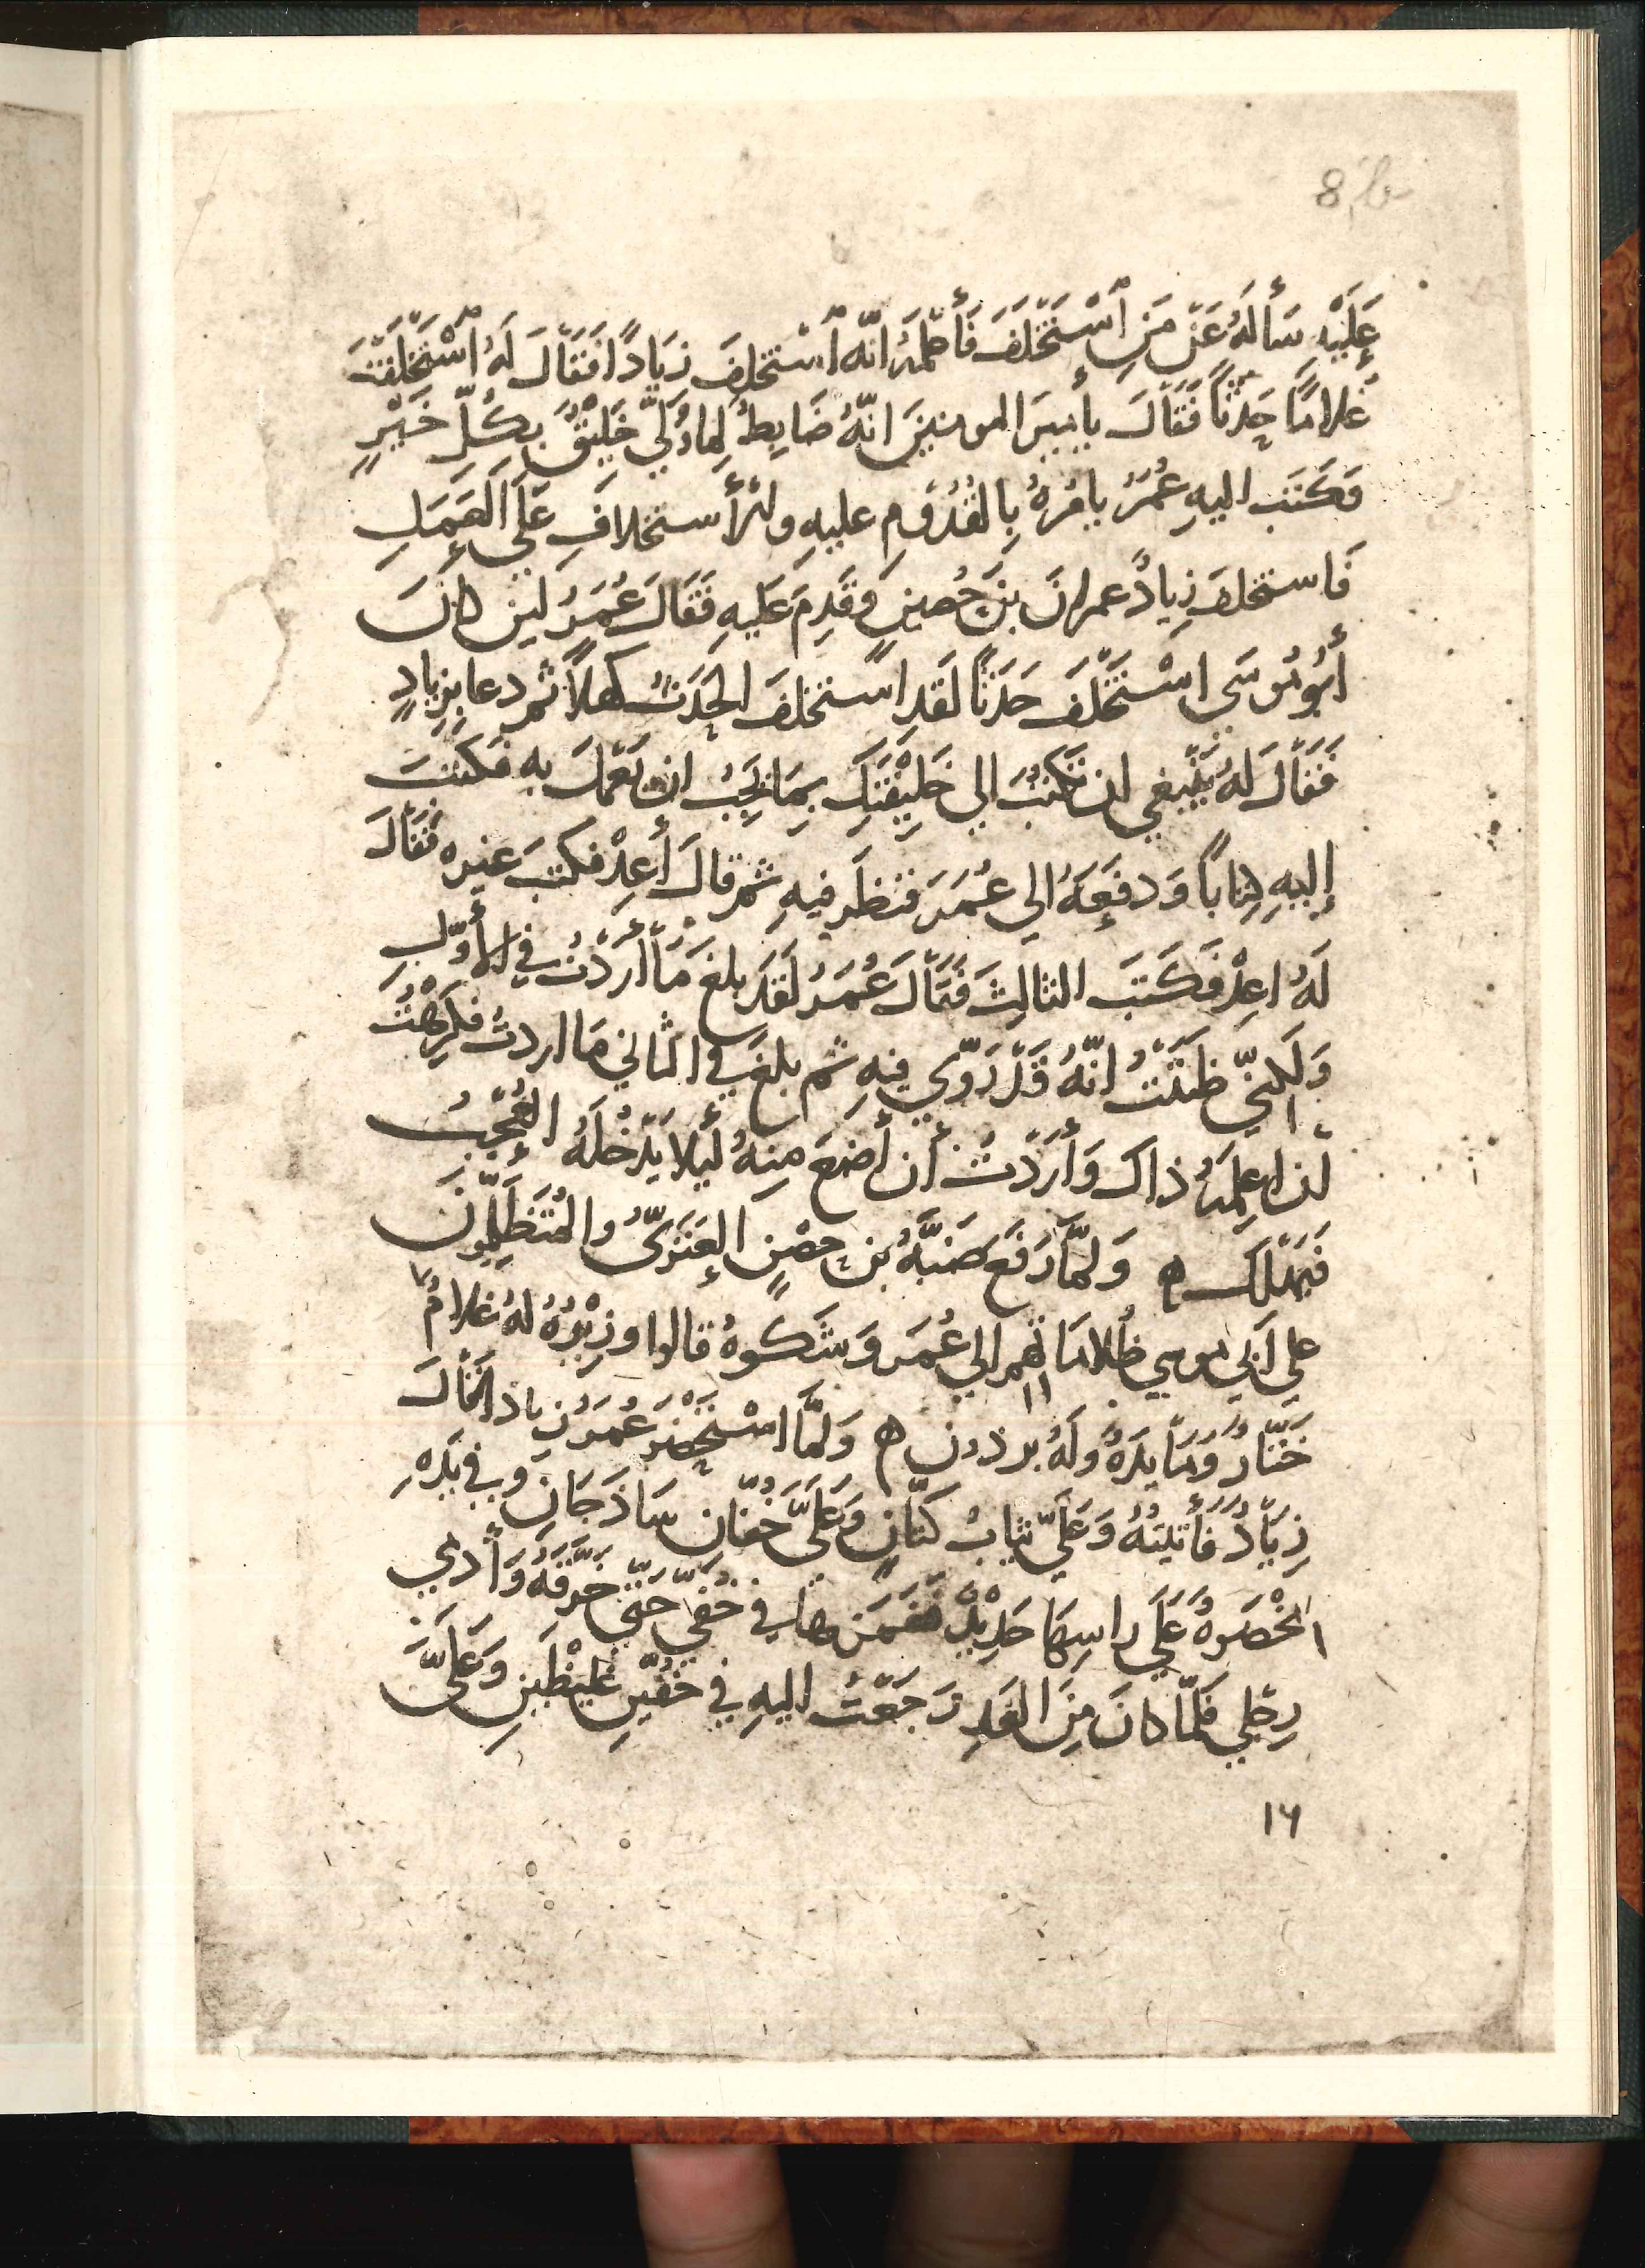 8
عَلَيْهِ سَأَلَهُ عَنْ مَنِ ٱسْتَخْلَفَ فَأَعْلَمَهُ انّه ٱسْتخلفَ زِيَادًا فَقَالَ لَهُ ٱسْتَخْلَفْتَ
غُلامًا حَدَثًا فَقَالَ يأميرَ المومنينَ انّهُ ضَابِطٌ لِمَا وُلِّيَ خَلِيقٌ بِكُلِّ خَيْرٍ
فكَتَب اليهِ عُمَرُ يامُرُهُ بِالقُدُومِ عليهِ والأستخلافِ عَلَى العَمَلِ
فَاستخلفَ زِيادٌ عمرانَ بنَ حُصينٍ وَقَدِمَ عَليهِ فَقَالَ عُمَرُ لين كانَ
أَبُو مُوسَى اسْتَخْلَفَ حَدَثًا لَقَدِ استخلفَ الحَدَثُ كَهلاً ثم دعا بزِيادٍ
فَقَالَ لهُ يَنْبغي ان تَكْتُبَ الي خَلِيْفَتِكَ بِمَا يَجِبُ ان يَعْمَلَ بِهِ فكتبَ
إليهِ كِتاباً وَدفعَهُ الي عُمَرَ فنظَرَ فيهِ ثم قالَ أَعِدْ فكتبَ غيره فَقَالَ
لَهُ اعِدْ فَكَتَبَ الثالِثَ فَقَالَ عُمَرُ لَقَد بلغَ مَا أَرَدْتُ في الأَوّلِ
وَلَكِنّي ظَنَنْتُ انّهُ قَدْ رَوّى فيهِ ثم بلغَ في الثاني مَا اردتُ فكَرِهْتُ
أن اعلِمَهُ ذاك وَأَرَدْتُ أن أضعَ مِنهُ لَيلا يَدْخُلَهُ العُجْبُ
فَيَهْلَكَ ه وَلمَّا رَفَعَ ضَبَّةُ بن حِصْنٍ العَنَزيُّ والمُتَظَلِّمُونَ
علي أَبي موسي ظُلاماتهم الي عُمَرَ وَشَكَوهُ قالوا وزِيْرُهُ لهُ غلامٌ
خَتّارٌ وَمَايدَةٌ وَلَهُ برذون ه وَلَمَّا اسْتَحْضَرَ عُمَرُ زيادا قَالَ
زِيَادٌ فَأَتيتهُ وَعَلَيّ ثيابُ كَتّانٍ وَعَلَيَّ خُفّان سَاذَجَان وَفي يَدِهِ
المخْصَرةُ عَلَي راسِهَا حَدِيْدٌ فغَمَزَ بها في خُفّي حَتّي خرَّقَهُ وَأَدمي
رِجْلي فلمّا كانَ مِنَ الغَدِ رَجَعْتُ اليهِ في خُفّيْنِ غليظَينِ وَعَلَيَّ
١٦